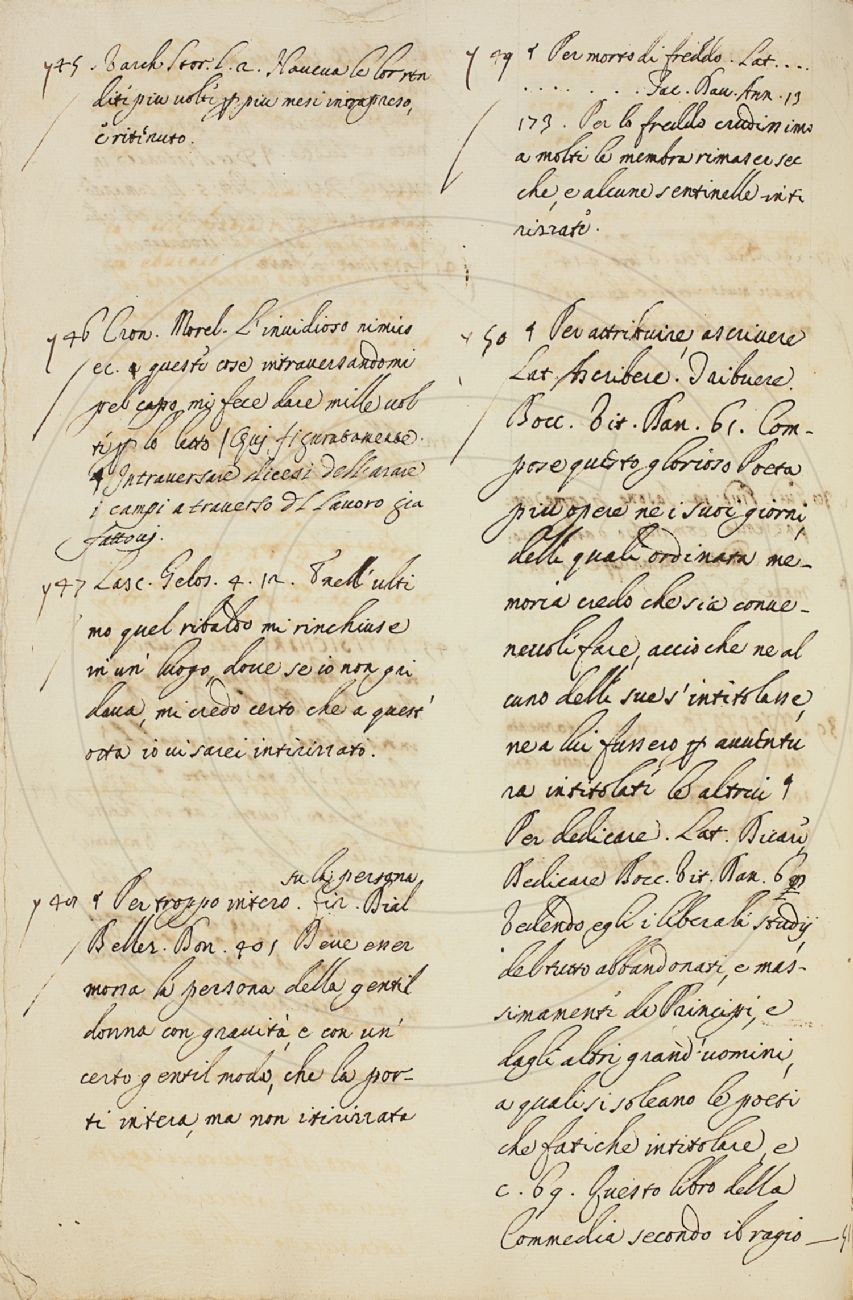 745. Varch Stor. l. 2. Haueua le lor ren
diti piu uolti p piu mesi intrapreso,
e ritenuto.
746 Cron. Morel. L'inuidioso nimico
ec. a questi cose intrauersandomi
pel capo, mi fece dare mille uol
ti p lo letto / Quj figuratamente.
¶ Intrauersare dicesi dell'arare
i campi a trauerso dl lauoro gia
fattouj.
747 Lasc. Gelos. 4. 12. Nell'ulti
mo quel ribaldo mi rinchiuse
in un' luogo, doue se io non gri
daua, mi credo certo che a quest'
otta io ui sarei intirizzato.
su la persona
748 ¶ Per troppo intero. Fir. Dial
Bellez. Don. 401 Deue esser
mossa la persona della gentil
donna con grauità, e con un'
certo gentil modo, che la por-
ti intera, ma non itirizzata
749 ¶ Per morto di freddo. Lat. ...
. . . . . . . . Tac. Dau. Ann. 13
173. Per lo freddo crudissimo
a molti le membra rimaser sec
che, e alcune sentinelle inti
rizzate.
750 ¶ Per attribuire, ascriuere
Lat. Ascribere. Tribuere.
Bocc. Vit. Dan. 61. Com-
pose questo glorioso Poeta
piu opere ne i suoi giorni,
delli quali ordinata me-
moria credo che sia conue-
neuoli fare, accio che ne al
cuno delle sue s'intitolasse,
ne a lui fussero p auuentu
ra intitolati le altrui ¶
Per dedicare. Lat. Dicare,
Dedicare Bocc. Vit. Dan. 67
Vedendo egli i liberali studij
del tutto abbandonati, e mas-
simamente da Principi, e
dagli altri grand'uomini,
a quali si soleano le poeti
che fatiche intitolare, e
c. 69. Questo libro della
Commedia secondo il ragio — 51